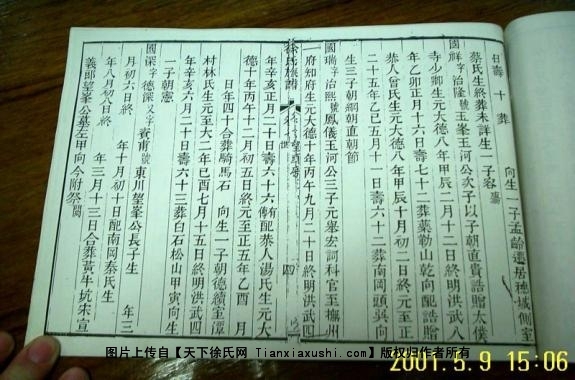 日壽十葬 向生一子孟齡遷居穗城側室
蔡氏生終葬未詳生一子容
國祥字治隆號玉峯玉河公次子以子朝直貴誥贈太僕
寺少卿生元大德八年甲辰二月十二日終明洪武八
年乙卯正月十六日壽七十二葬藥勒山乾向配誥贈
恭人曾氏生元大德八年甲辰十月初二日終元至正
二十五年乙巳五月十一日壽六十二葬南岡頭巽向
生三子朝綱朝直朝節
國瑞字治熙號鳳儀玉河公三子元舉宏詞科官至撫州
府知府生元大德十年丙午九月二十日終明洪武四
徐氏族譜 四
年辛亥正月二十日壽六十六有傳配恭人湯氏生元大
德十年丙午十二月初四日終元至正五年乙酉 月
日年四十合葬騎馬石 向生一子朝德續室潭
村林氏生元至大二年己酉七月十五日終明洪武四
年辛亥六月二十日壽六十三葬白石松山甲寅向生
一子朝憲
國 字德深又字賓甫號東川望峯公長子生 年三
月初六日終 年十月初十日配南岡秦氏生
年八月初八日終 年三月十三日合葬黃牛坑宋宣
義郎望峯公墓左甲向今附祭
图片上传自【天下徐氏网 Tianxiaxushi.com】版权归作者所有
2001.5.9 15:06